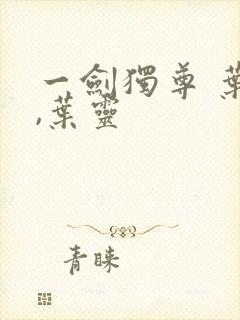 一劍獨尊 葉
,葉靈
青睐